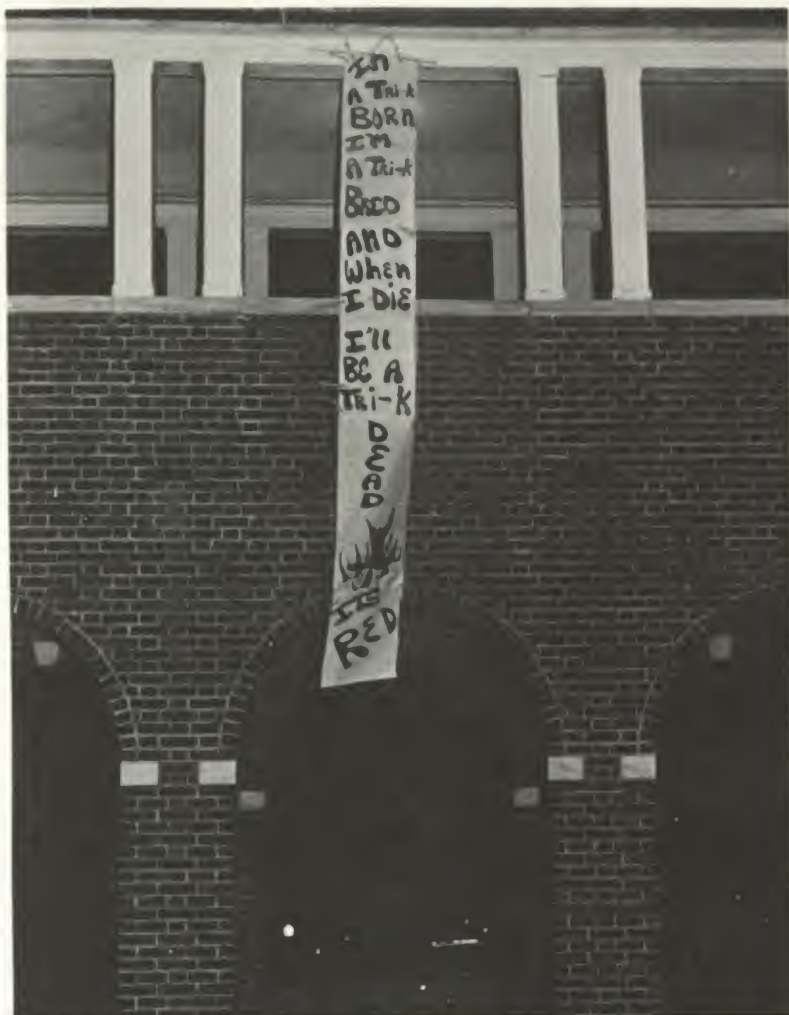 I'm
A Tri-K
BORN
I'M
A Tri-K
BRED
AND
WhEn
I DiE
I'll
BE A
TRi-K
D
E
A
D
RED